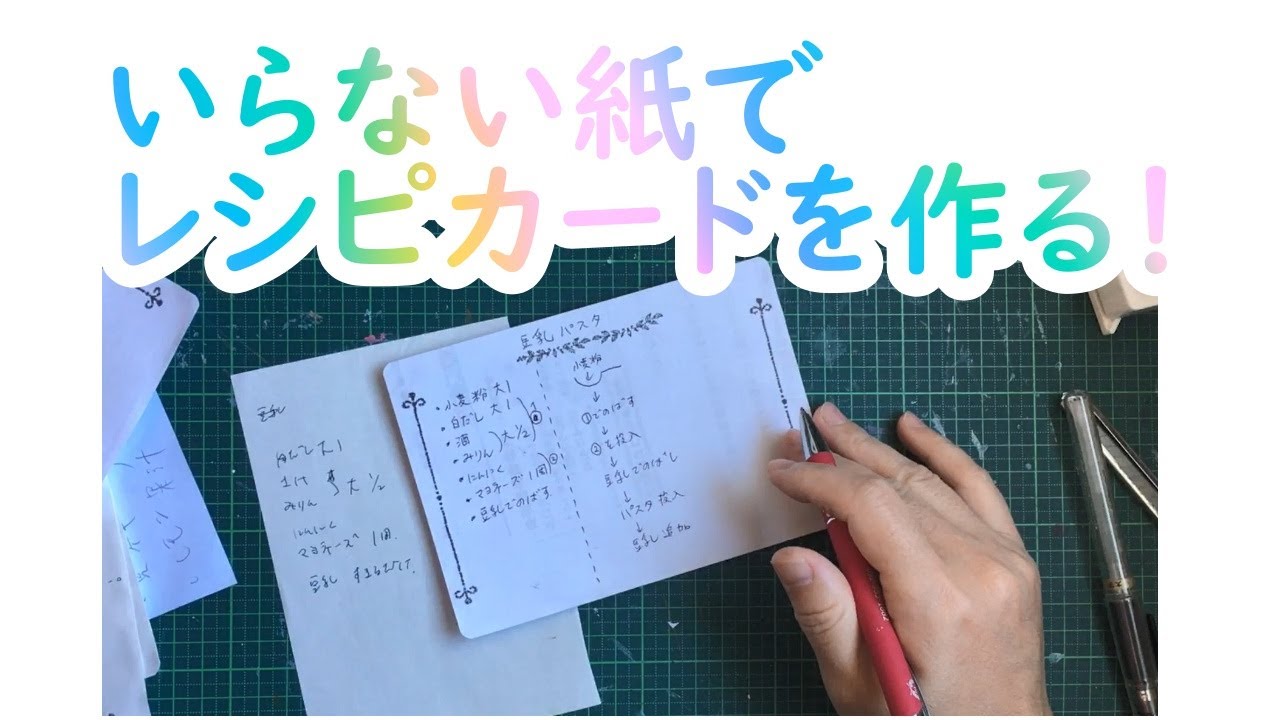 いらない紙で
レシピカードを作る!
豆乳パスタ
・小麦粉 大1
・白だし 大1
・酒
・みりん 大1/2
・にんにく
・マヨチーズ 1周
・豆乳でのばす
小麦粉
↓
↓
①でのばす
↓
②を投入
↓
豆乳でのばし
↓
パスタ投入
↓
豆乳追加
豆乳
白だし大1
みりん
大1/2
にんにく
マヨチーズ 1周.
豆乳